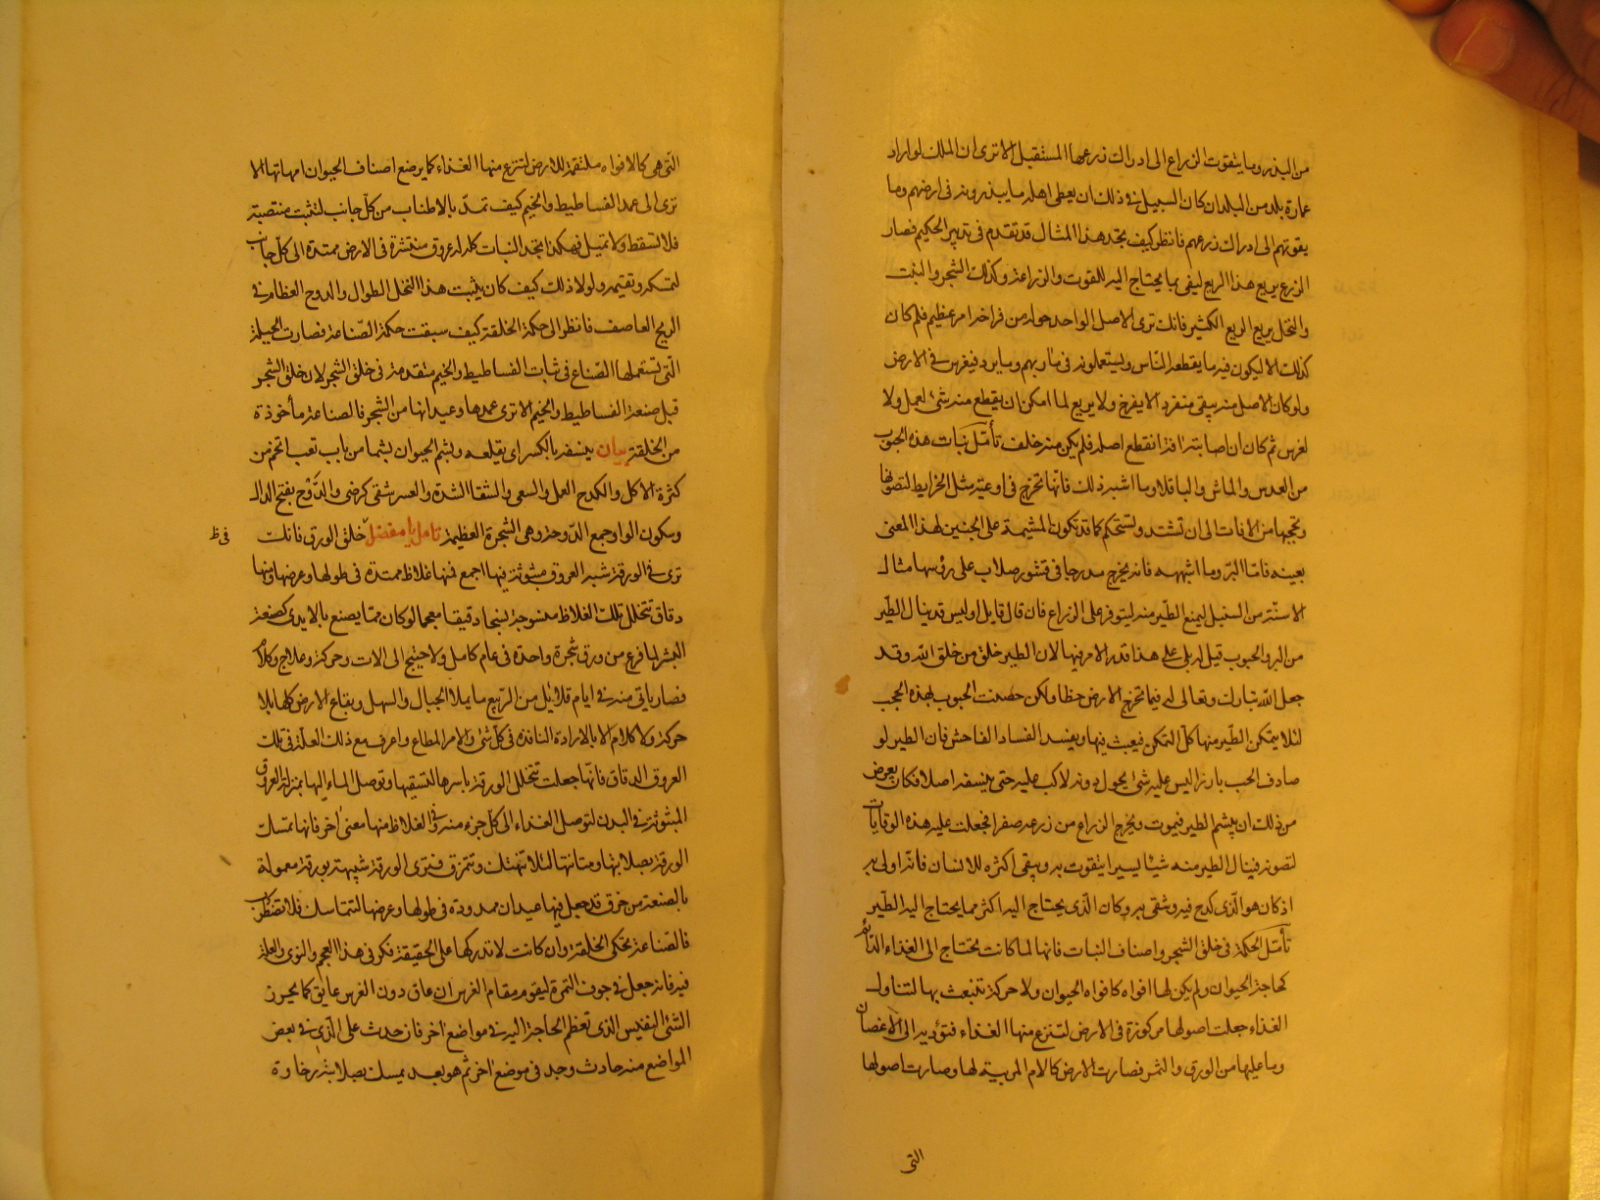 من البذر وما يتقوت الزراع الى ادراك زرعها المستقبل الا ترى ان الملك لو اراد
عمارة بلد من البلدان كان السبيل فى ذلك ان يعطى اهله ما يبذرونه فى ارضهم وما
يقوتهم الى ادراك زرعهم فانظر كيف تجد هذا المثال قد تقدم فى تدبير الحكيم فصار
الزرع يريع هذا الريع ليفى بما يحتاج اليه للقوت والزراعة وكذلك الشجر والنبت
والنخل يريع الريع الكثير فانك ترى الاصل الواحد حوله من فراخه امر عظيم فلم كان
كذلك الا ليكون فيه ما يقطعه الناس ويستعملونه فى مآربهم وما يرد فيغرس فى الارض
ولو كان الاصل منه يبقى منفردا لا يفرخ ولا يريع لما امكن ان يقطع منه شئ لعمل ولا
لغرس ثم كان ان اصابته آفة انقطع اصله فلم يكن منه خلف تأمّل نبات هذه الحبوب
من العدس والماش والباقلا وما اشبه ذلك فانّها تخرج فى اوعية مثل الخرايط لتصونها
وتحجبها من الافات الى ان تشتد وتستحكم كما قد تكون المشيمة على الجنين لهذا المعنى
بعينه فامّا البرّ وما اشبهه فانه يخرج مدرجا فى قشور صلاب على رؤسها مثال
الاسنّة من السنبل ليمنع الطّير منه ليتوفر على الزراع فان قال قايل اوليس قد ينال الطّير
من البر والحبوب قيل له بلى على هذا قدر الامر فيها لان الطير خلق من خلق الله وقد
جعل الله تبارك وتعالى له فيما تخرج الارض حظا ولكن حصنت الحبوب بهذه الحجب
لئلا يتمكن الطّير منها كلّ التمكن فيعبث فيها ويفسد الفساد الفاحش فان الطير لو
صادف الحب بارزا ليس عليه شئ يحول دونه لاكب عليه حتى ينسفه اصلا فكان يعرض
من ذلك ان يبشم الطير فيموت ويخرج الزراع من زرعه صفرا فجعلت عليه هذه الوقايات
لتصونه فينال الطير منه شيئا يسيرا يتقوت به ويبقى اكثره للانسان فانّه اولى به
اذ كان هو الّذى كدح فيه وشقى به وكان الّذى يحتاج اليه اكثر مما يحتاج اليه الطّير
تأمّل الحكمة فى خلق الشجر واصناف النبات فانها لما كانت تحتاج الى الغذاء الدّائم
كحاجة الحيوان ولم يكن لها افواه كافواه الحيوان ولا حركة تنبعث بها لتناول
الغذاء جعلت اصولها مركوزة فى الارض لتنزع منها الغذاء فتؤديه الى الاغصان
وما عليها من الورق والثمر فصارت الارض كالام المربية لها وصارت اصولها
التى
الّتى هى كالافواه ملتقمة للارض لتنزع منها الغذاء كما يرضع اصناف الحيوان امهاتها الا
ترى الى عمد الفساطيط والخيم كيف تمدّ بالاطناب من كلّ جانب لتثبت منتصبة
فلا تسقط ولا تميل فهكذا تجد النبات كله له عروق منتشرة فى الارض ممتدة الى كلّ جانب
لتمسكه وتقيمه ولولا ذلك كيف كان يثبت هذا النخل الطوال والدوح العظام فى
الريح العاصف فانظر الى حكمة الخلقة كيف سبقت حكمة الصّناعة فصارت الحيلة
الّتى تستعملها الصّناع فى ثبات الفساطيط والخيم متقدمة فى خلق الشجر لان خلق الشجر
قبل صنعة الفساطيط والخيم الا ترى عمدها وعيدانها من الشجر فالصناعة مأخوذة
من الخلقة بيان ينسفه بالكسر اى يقلعه وبشم الحيوان بشما من باب تعب اتخم من
كثرة الاكل والكدح العمل والسعى والشقا الشدة والعسر شقى كرضى والدَّوْح بفتح الدال
وسكون الواو جمع الدّوحة وهى الشجرة العظيمة تامل يا مفضل خلق الورق فانك
فى ظ
ترى فى الورقة شبه العروق مبثوثة فيها اجمع فمنها غلاظ ممتدة فى طولها وعرضها ومنها
دقاق تتخلل تلك الغلاظ منسوجة نسجا دقيقا معجما لو كان ممّا يصنع بالايدى كصنعة
البشر لما فرغ من ورق شجرة واحدة فى عام كامل ولاحتيج الى الات وحركة وعلاج وكلام
فصار ياتى منه فى ايام قلائل من الرّبيع ما يملا الجبال والسهل وبقاع الارض كلها بلا
حركة ولا كلام الا بالارادة النافذة فى كلّ شئ والامر المطاع واعرف مع ذلك العلّة فى تلك
العروق الدقاق فانّها جعلت تتخلل الورقة باسرها لتسقيها وتوصل الماء اليها بمنزلة العروق
المبثوثة فى البدن لتوصل الغذاء الى كلّ جزء منه وفى الغلاظ منها معنى اخر فانها تمسك
الورقة بصلابتها ومتانتها لئلا تنهتك وتتمزق فترى الورقة شبيهة بورقة معمولة
بالصنعة من خرق قد جعل فيها عيدان ممدودة فى طولها وعرضها لتتماسك فلا تضطرب
فالصّناعة تحكى الخلقة وان كانت لا تدركها على الحقيقة فكر فى هذا العجم والنوى والعلة
فيه فانه جعل فى جوف الثمرة ليقوم مقام الغرس ان عاق دون الغرس عايق كما يحرز
الشئ النفيس الذى تعظم الحاجة اليه فى مواضع اخر فان حدث على الّذى فى بعض
المواضع منه حادث وجد فى موضع اخر ثم هو بعد يمسك بصلابته رخاوة